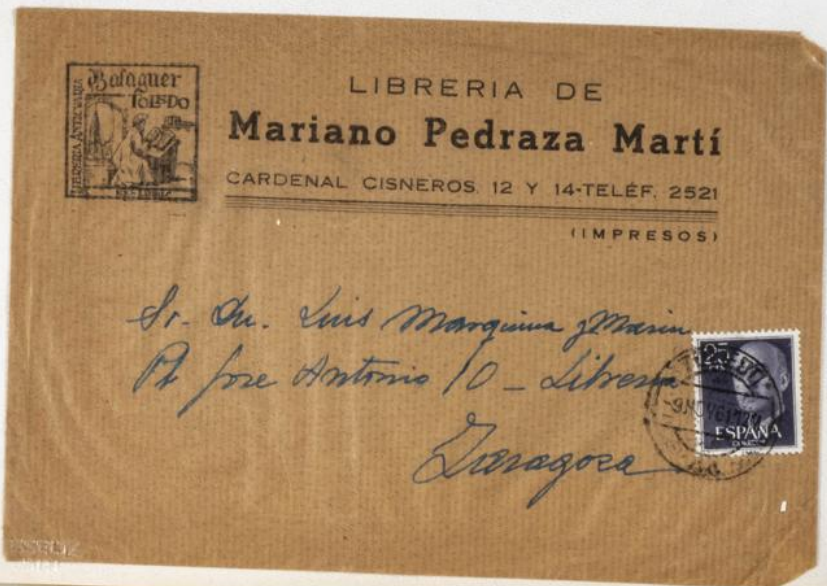 Balaguer
TOLEDO
LIBRERIA ANTICVARIA
LIBRERIA DE
Mariano Pedraza Martí
CARDENAL CISNEROS, 12 Y 14-TELÉF. 2521
(IMPRESOS)
Sr. Dn. Luis Marquina y Marin
Pl Jose Antonio 10 - Libreria
Zaragoza
25
TOLEDO
ESPAÑA
CORREOS